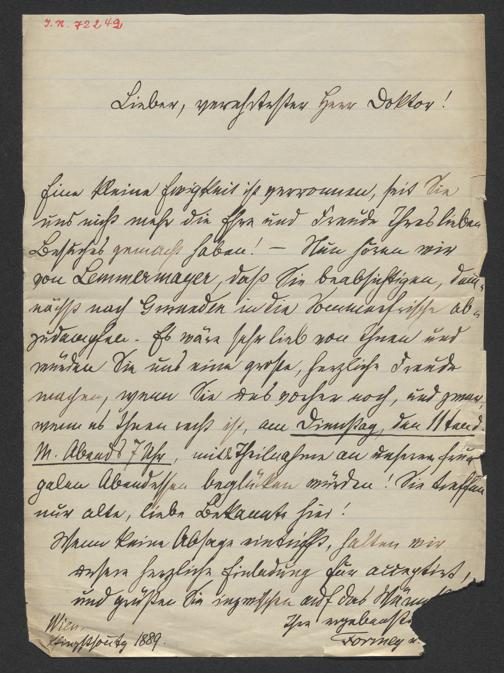 I.N. 72242
Lieber, verehrtester Herr Doktor!
Eine kleine Ewigkeit ist verronnen, seit Sie
uns nicht mehr die Ehre und Freude Ihres lieben
Besuches gemacht haben! — Nun hören wir
von Lemmermayer, daß Sie beabsichtigen, dem-
nächst nach Gmunden in die Sommerfrische ab-
zudampfen. Es wäre sehr lieb von Ihnen und
würden Sie uns eine große, herzliche Freude
machen, wenn Sie uns vorher noch, und zwar,
wenn es Ihnen recht ist, am Dienstag, den 11ten d.
M. Abends 7 Uhr, mit Theilnahme an unserem fru-
galen Abendessen beglücken würden! Sie treffen
nur alte, liebe Bekannte hier!
Wenn keine Absage eintrifft, halten wir
unsere herzliche Einladung für acceptirt,
und grüßen Sie inzwischen auf das
Ihr
Wien,
Pfingstsonntag 1889.